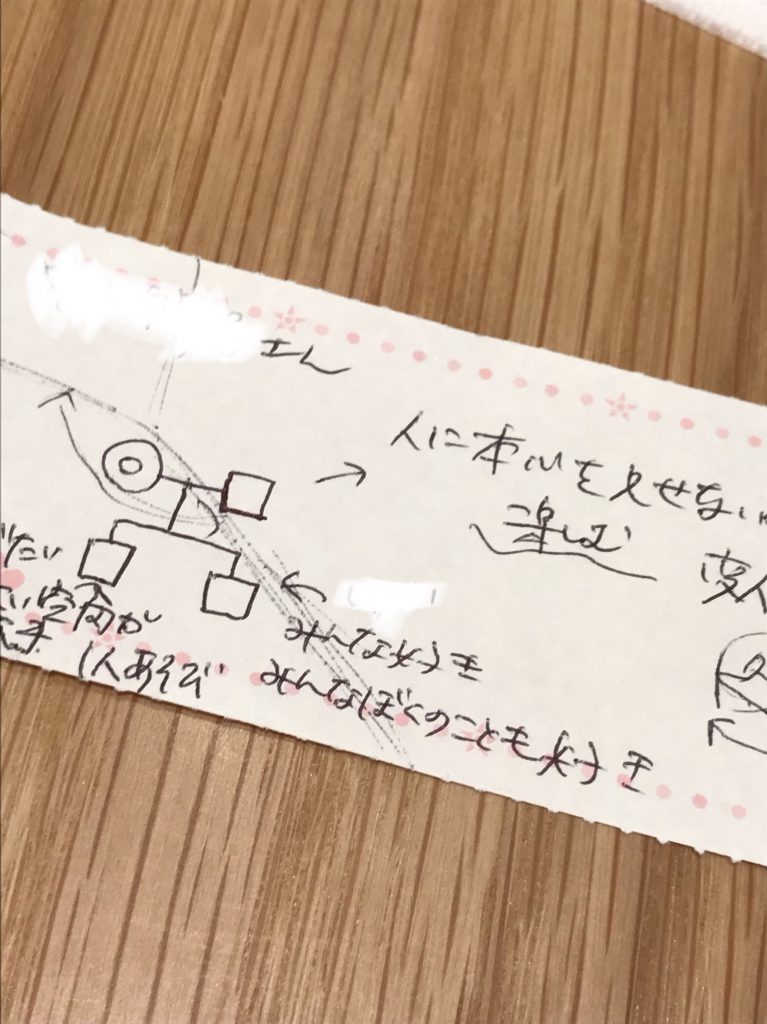 さん
人に本心を見せない
楽しむ
変人
たい
い空間が
1人あそび
みんな好き
みんなぼくのことも好き